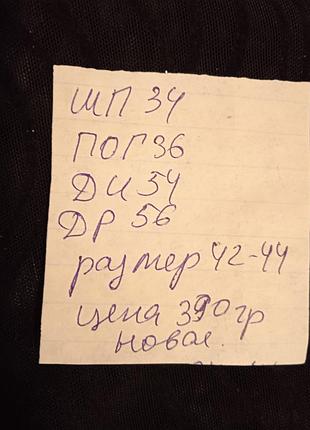 ШП 34
ПОГ 36
ДИ 54
ДР 56
размер 42-44
цена 390 гр
новая.